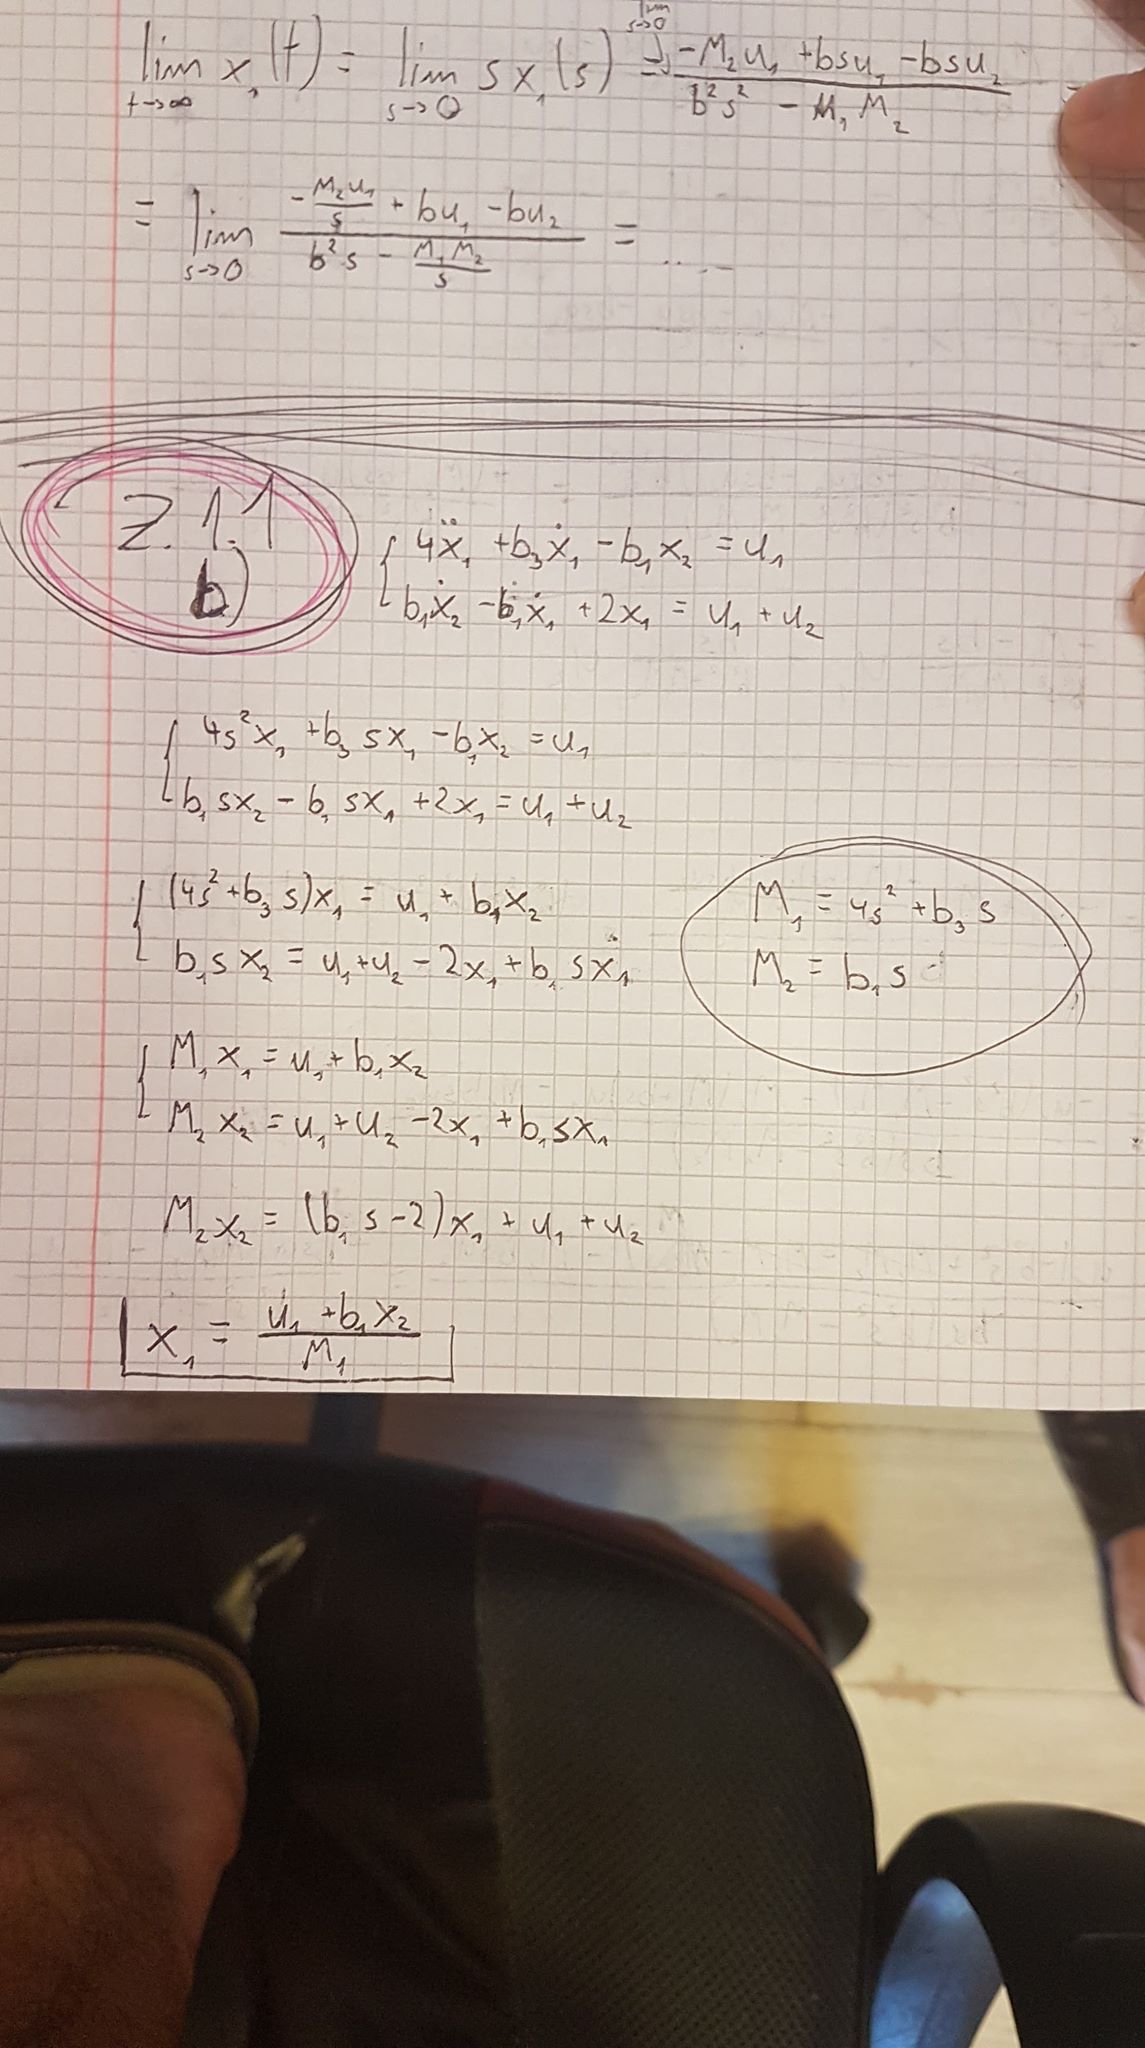 lim x₁(t) = lim s x₁(s) = lim s -M₂u₁ + bsu₁ - bsu₂ / b²s² - M₁M₂ =
t→∞ s→0 s→0
= lim -M₂u₁/s + bu₁ - bu₂ / b²s - M₁M₂/s = .....
s→0
Z.1.1
b)
{ 4ẍ₁ + b₃ẋ₁ - b₁x₂ = u₁
b₁ẋ₂ - b₁ẋ₁ + 2x₁ = u₁ + u₂
{ 4s²x₁ + b₃sx₁ - b₁x₂ = u₁
b₁sx₂ - b₁sx₁ + 2x₁ = u₁ + u₂
{ (4s² + b₃s)x₁ = u₁ + b₁x₂
b₁sx₂ = u₁ + u₂ - 2x₁ + b₁sx₁
M₁ = 4s² + b₃s
M₂ = b₁s
{ M₁x₁ = u₁ + b₁x₂
M₂x₂ = u₁ + u₂ - 2x₁ + b₁sx₁
M₂x₂ = (b₁s - 2)x₁ + u₁ + u₂
x₁ = u₁ + b₁x₂ / M₁